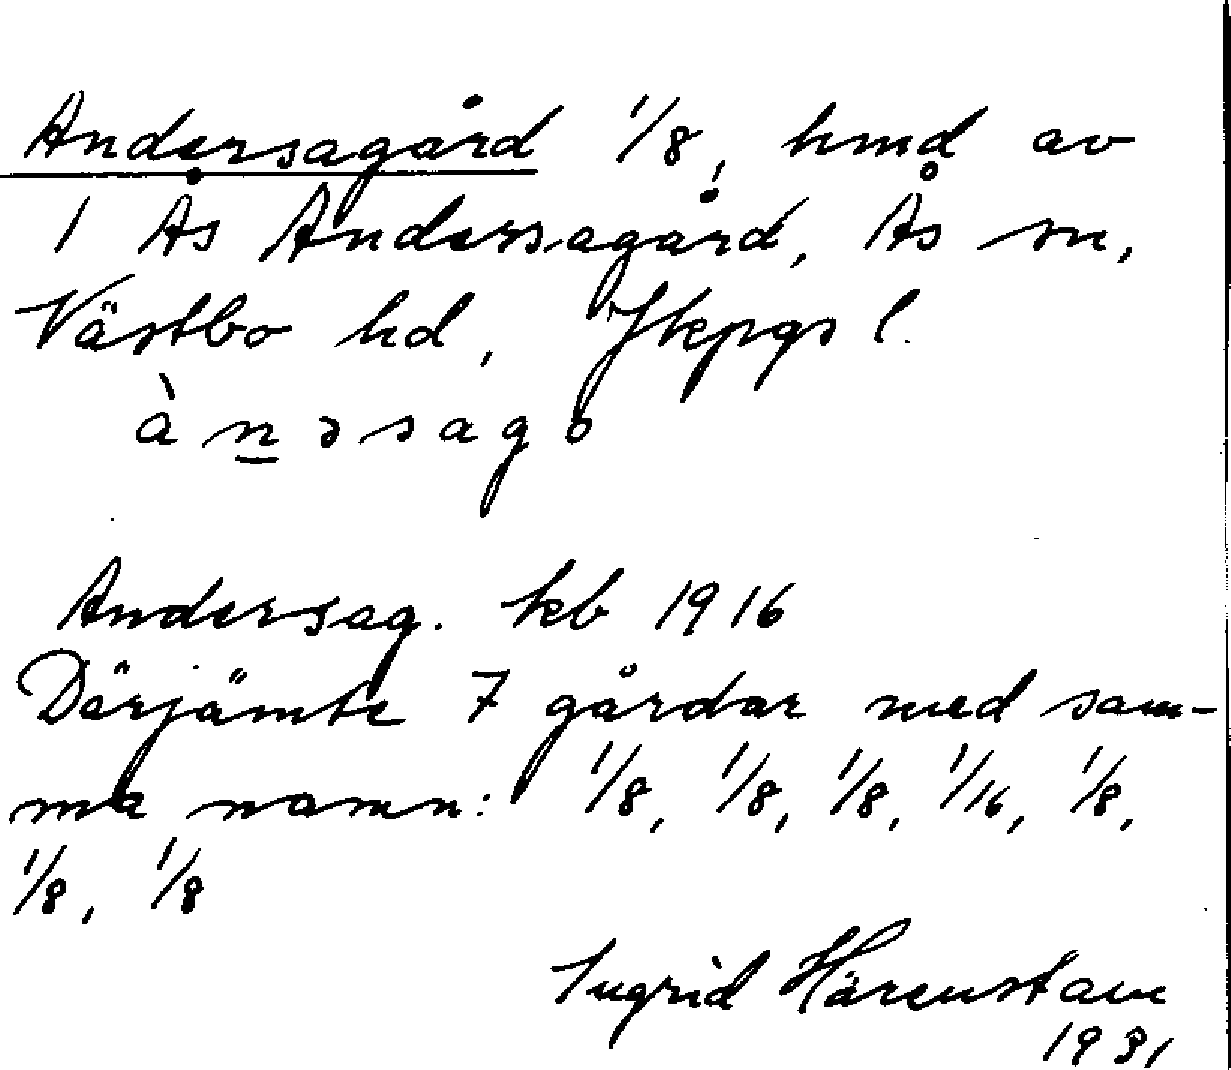 Andersagård 1/8, hmd av
1 Ås Andersagård, Ås sn,
Västbo hd, Jkpgs l.
ànəsagɔ
Andersag. kb 1916
Därjämte 7 gårdar med sam-
ma namn: 1/8, 1/8, 1/8, 1/16, 1/8,
1/8, 1/8
Ingrid Härenstam
1931